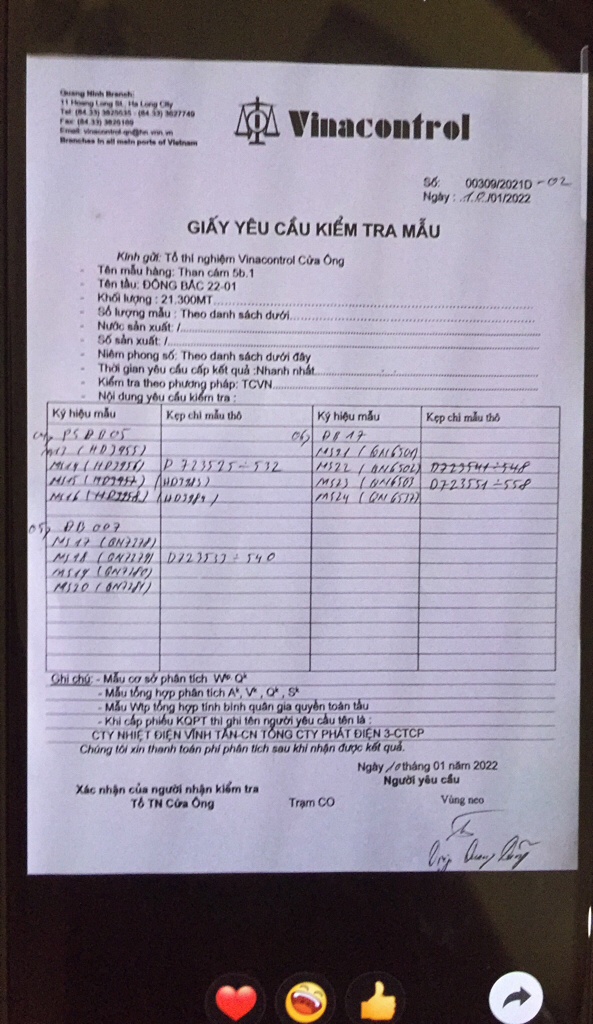 Quang Ninh Branch:
11 Hoang Long St., Ha Long City
Tel: (84.33) 3825635 - (84.33) 3627749
Fax: (84.33) 3826169
Email: vinacontrol-qn@hn.vnn.vn
Branches in all main ports of Vietnam
Vinacontrol
Số: 00309/2021D -02
Ngày : 10/01/2022
GIẤY YÊU CẦU KIỂM TRA MẪU
Kính gửi: Tổ thí nghiệm Vinacontrol Cửa Ông
- Tên mẫu hàng: Than cám 5b.1
- Tên tàu: ĐÔNG BẮC 22-01
- Khối lượng : 21.300MT
- Số lượng mẫu : Theo danh sách dưới
- Nước sản xuất: /
- Số sản xuất: /
- Niêm phong số: Theo danh sách dưới đây
- Thời gian yêu cầu cấp kết quả :Nhanh nhất
- Kiểm tra theo phương pháp: TCVN
- Nội dung yêu cầu kiểm tra :
Ký hiệu mẫu Kẹp chì mẫu thô Ký hiệu mẫu Kẹp chì mẫu thô
ĐB 17
(HD3955) MS21 (QN6501)
(HD3956) D723525÷532 MS22 (QN6502) D723541÷548
MS15 (HD3957) MS23 (QN6503) D723551÷558
MS16 (HD3958) MS24 (QN6537)
ĐB 007
MS17 (QN7278)
MS18 (QN7279) D723533÷540
MS19 (QN7280)
MS20 (QN7281)
Ghi chú: - Mẫu cơ sở phân tích W Q
- Mẫu tổng hợp phân tích A, V, Q, S
- Mẫu Wtp tổng hợp tính bình quân gia quyền toàn tàu
- Khi cấp phiếu KQPT thì ghi tên người yêu cầu tên là :
CTY NHIỆT ĐIỆN VĨNH TÂN-CN TỔNG CTY PHÁT ĐIỆN 3-CTCP
Chúng tôi xin thanh toán phí phân tích sau khi nhận được kết quả.
Ngày 10 tháng 01 năm 2022
Xác nhận của người nhận kiểm tra Người yêu cầu
Tổ TN Cửa Ông Trạm CO Vùng neo